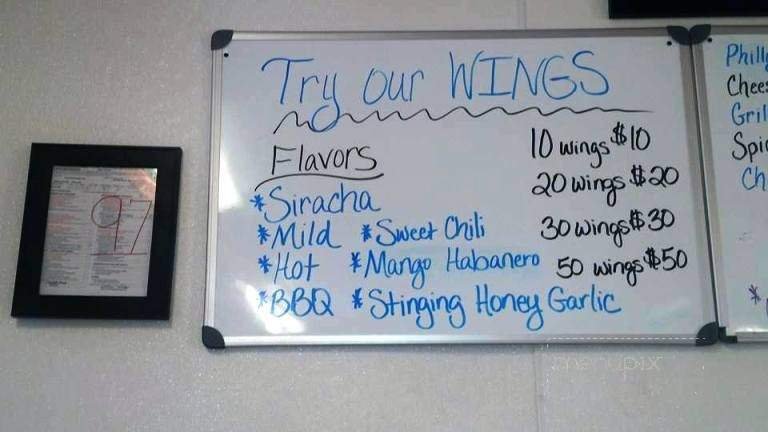 Try our WINGS
Flavors
*Siracha
*Mild *Sweet Chili
*Hot *Mango Habanero
*BBQ *Stinging Honey Garlic
10 wings $10
20 wings $20
30 wings $30
50 wings $50
97
Philly
Chees
Gril
Spic
Ch
*